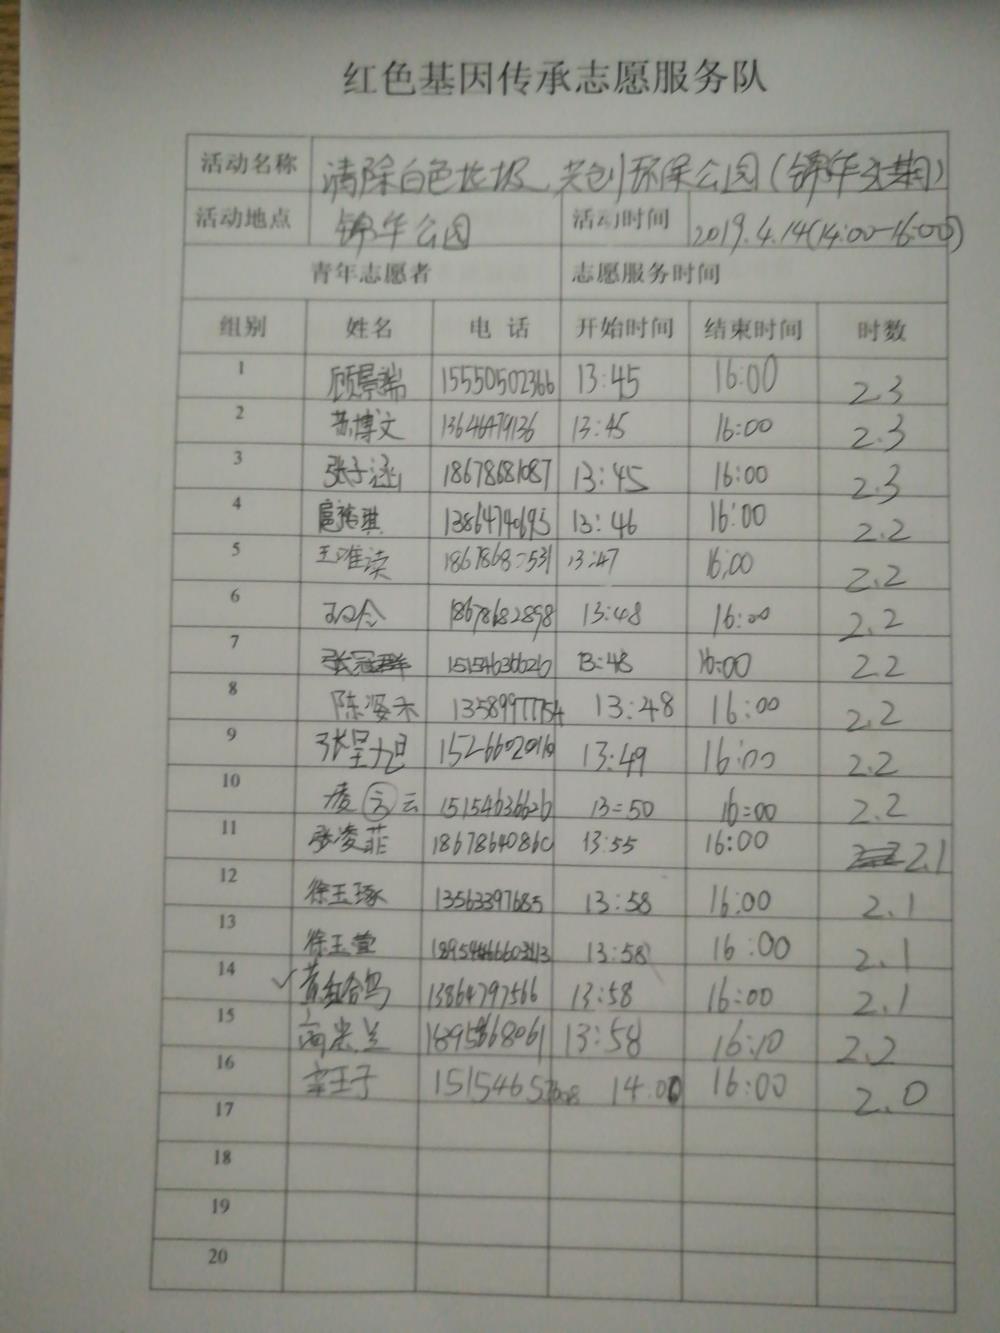 红色基因传承志愿服务队
活动名称 清除白色垃圾 共创环保公园(锦华
活动地点 锦华公园 活动时间 2019.4.14(14:00-16:00)
青年志愿者 志愿服务时间
组别 姓名 电话 开始时间 结束时间 时数
1 顾景端 15550502366 13:45 16:00 2.3
2 苏博文 13646479136 13:45 16:00 2.3
3 张子涵 18678681087 13:45 16:00 2.3
4 扈裕琪 13864740695 13:46 16:00 2.2
5 王唯读 13:47 16:00 2.2
6 18678682898 13:48 16:00 2.2
7 张冠群 15154636626 13:48 16:00 2.2
8 陈姿禾 13589977754 13:48 16:00 2.2
9 13:49 16:00 2.2
10 凌云 15154636626 13:50 16:00 2.2
11 张凌菲 18678640860 13:55 16:00 2.1
12 徐玉琢 13563397685 13:58 16:00 2.1
13 徐玉萱 13:58 16:00 2.1
14 13864797566 13:58 16:00 2.1
15 13:58 16:10 2.2
16 14:00 16:00 2.0
17
18
19
20